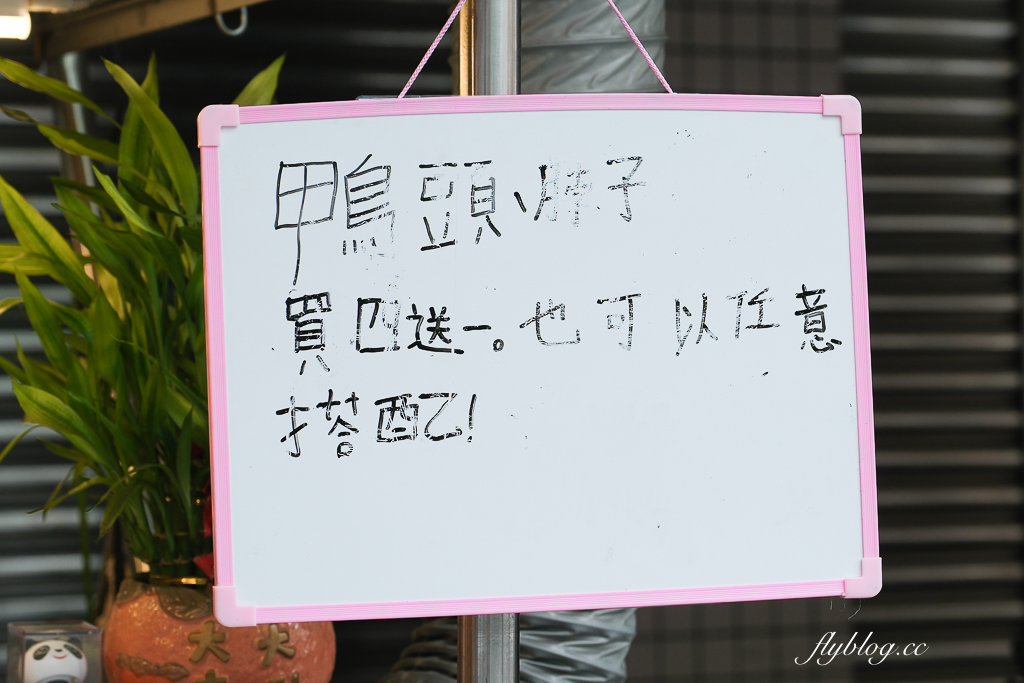 鴨頭、脖子
買四送一。也可以任意
搭配!
大 大
flyblog.cc